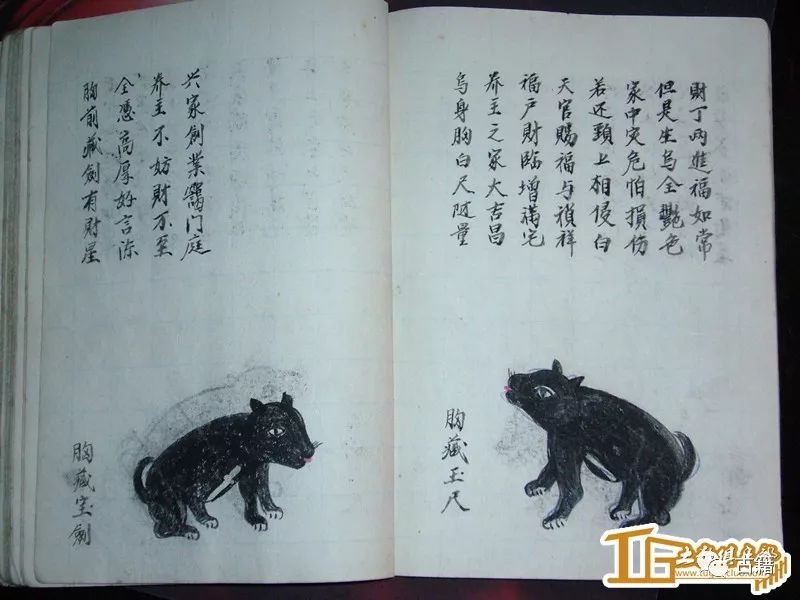 胸前藏劍有財星
全憑高厚好言陈
养主不妨財不至
兴家創業门庭
胸藏宝劍
乌身胸白尺随量
养主之家大吉昌
福户財臨增满宅
天官賜福与禎祥
若还頸上相侵白
家中灾危怕損伤
但是坐乌全艷色
財丁两進福如常
胸藏玉尺
古籍